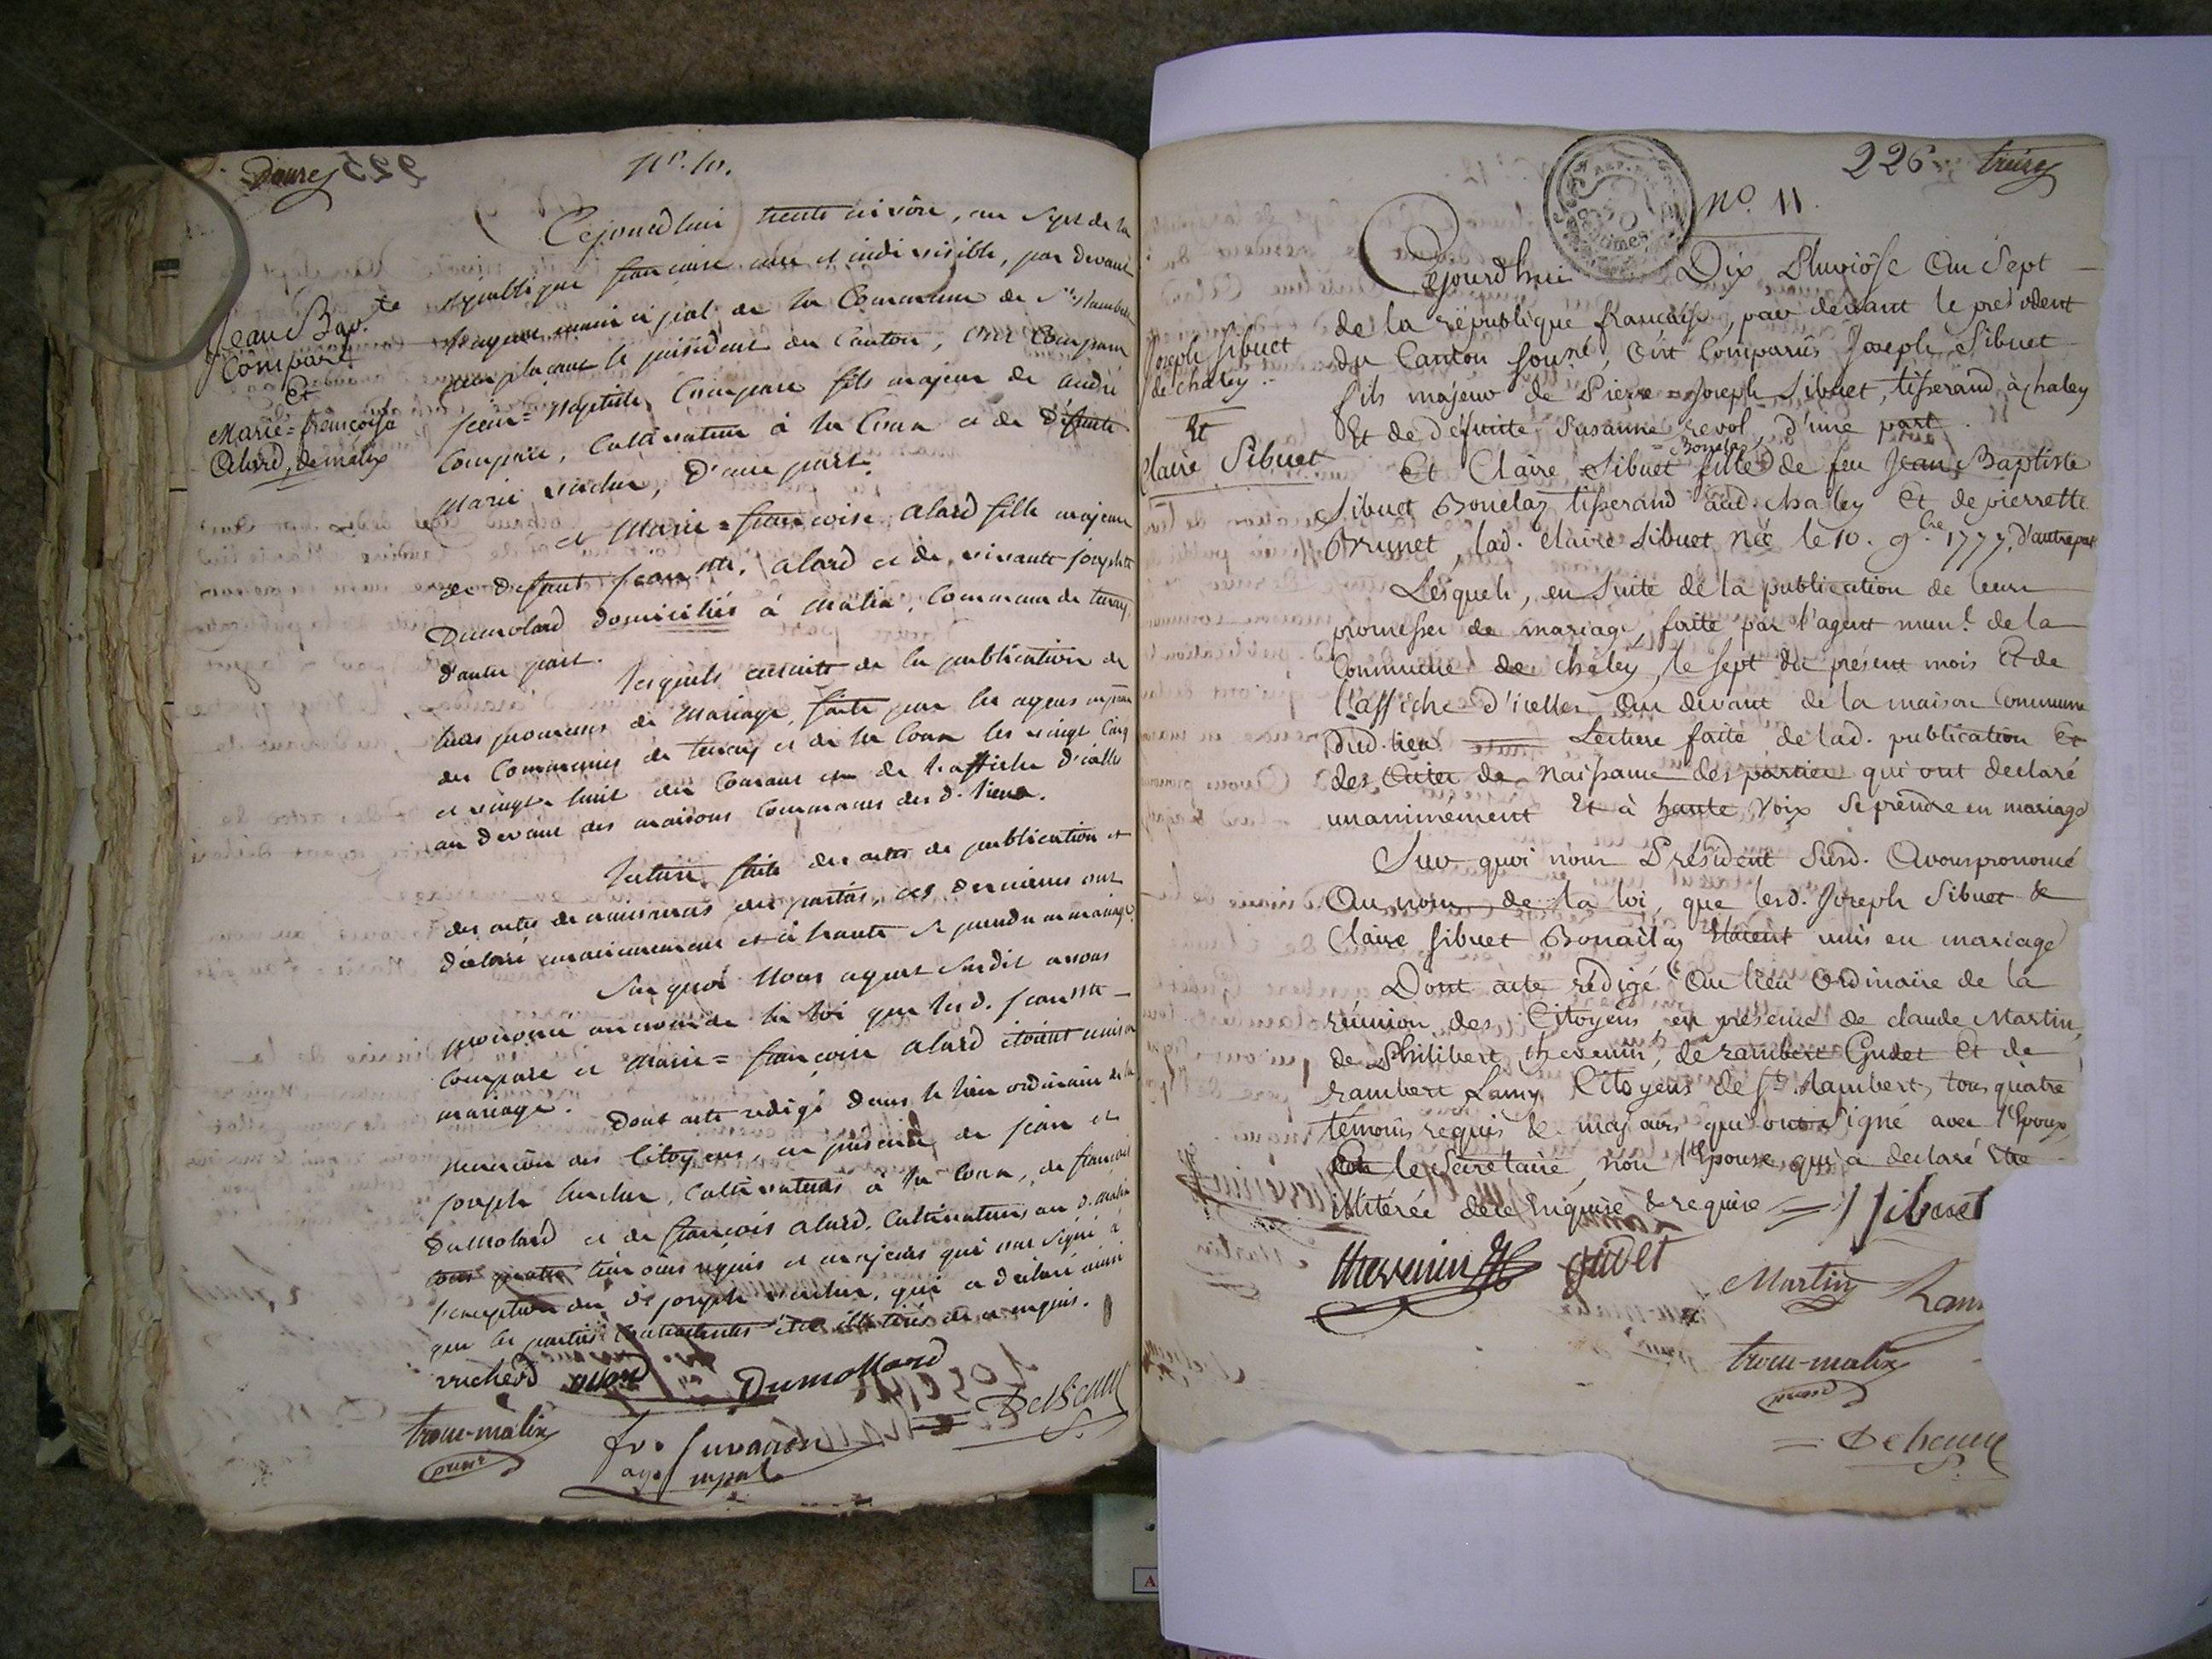 Douze
N°. 10.
Jean Bap.te
Compare
Et
Marie=francoise
Alard, de malix
Cejourdhui trente nivôse, an sept de la
république francaise une et indivisible, par devant
municipal de la Commune de St. Rambert
remplacant le président du Canton, ont Comparu
jean=baptiste Compare fils majeur de andré
Compare, Cultivateur à la Coux et de défunte
marie vucher, D'une part.
et Marie=francoise alard fille majeure
de defunt jean bte. alard et de vivante josephte
Dumolard domiciliés à malix, Commune de tenay,
d'autre part.
Lesquels ensuite de la publication de
leurs promesses de mariage, faite par les agens mpaux
des Communes de tenay et de la Coux les vingt Cinq
et vingt-huit du Courant et de l'affiche d'icelles
au devant des maisons Communes des d. lieux.
Lecture faite des actes de publication et
des actes de naissances des parties, ces dernieres ont
déclaré unanimement et à haute se prendre en mariage.
Sur quoi Nous agent Susdit avons
prononcé au nom de la loi que lesd. jean bte
Compare et Marie=francoise alard étoient unis en
mariage.
Dont acte redigé dans le lieu ordinaire de la
reunion des Citoyens, en présence de jean et
joseph vucher, Cultivateurs à la Coux, de francois
Dumolard et de francois alard, Cultivateurs au d. malix
tous quatre témoins réquis et majeurs qui ont Signé à
l'exception du d. joseph vucher, qui a declaré ainsi
que les parties Contractantes être illitérés de ce enquis.
vucherd alard Dumollard
trocu-malix
prési
fr. juvanon
agt mpal
Debeney
226 treize
n°. 11.
Joseph Sibuet
de chaley
Et
Claire Sibuet
Cejourd'hui Dix Pluviôse An Sept
de la république francaise, par devant le president
du Canton Souné, Ont Comparûs Joseph Sibuet
fils majeur de Pierre=Joseph Sibuet, tisserand à chaley
Et de défunte Susanne revol, d'une part.
=Bonelaz
Et Claire Sibuet fille de feu Jean Baptiste
Sibuet Bonelaz tisserand aud. chaley Et de pierrette
Brunet, lad. claire Sibuet Née le 10. 9.bre 1777, d'autre part
Lesquels, en Suite de la publication de leurs
promesses de mariage, faite par l'agent mun.l de la
Commune de chaley, le sept du présent mois Et de
l'affiche d'icelles Au devant de la maison Commune
Dud. lieu. Lecture faite de lad. publication Et
des Actes de Naissance des parties qui ont declaré
unanimement Et à haute Voix Se prendre en mariage
Sur quoi nous Président Susd. Avons prononcé
Au nom de la loi, que lesd. Joseph Sibuet &
Claire Sibuet Bonailaz Etoient unis en mariage
Dont acte rédigé Au lieu Ordinaire de la
réunion des Citoyens, en présence de claude Martin,
de Philibert thevenin, de rambert Gudet Et de
rambert Lamy Citoyens de St. Rambert, tous quatre
témoins requis & majeurs qui ont Signé avec l'Epoux,
le Secrétaire, non l'Epouse qui a declaré Etre
illitérée de ce Enquise & requise = J Sibuet
thevenin gudet
Martin Lam
trocu-malix
prési
= Debeney